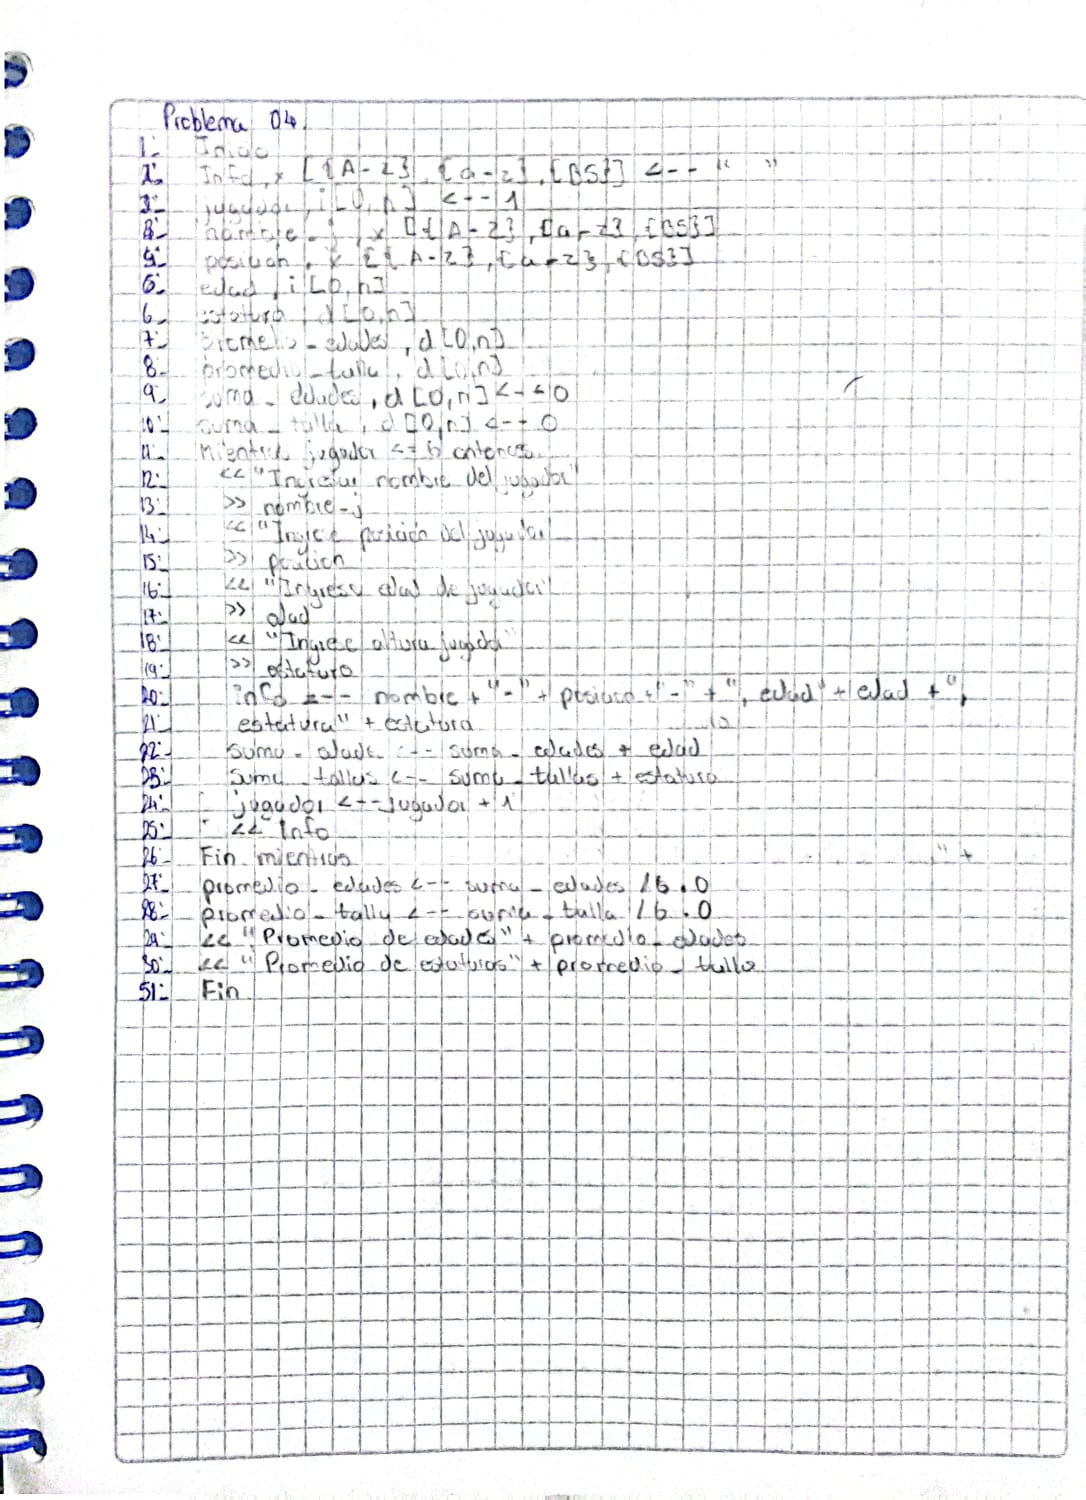 Problema 04.
1.- Inicio
2.- Info, x [{A-z}, {a-z}, {BS}] <-- " "
3.- jugador, i [0,n] <-- 1
3.- nombre_j, x [{A-Z}, {a-z}, {BS}]
4.- posicion, x [{A-Z}, {a-z}, {BS}]
5.- edad, i [0,n]
6.- estatura, d [0,n]
7.- promedio_edades, d [0,n]
8.- promedio_talla, d [0,n]
9.- suma_edades, d [0,n] <-- 0
10.- suma_talla, d [0,n] <-- 0
11.- Mientras jugador <= 6 entonces
12.- << "Ingrese nombre del jugador"
13.- >> nombre_j
14.- << "Ingrese posición del jugador
15.- >> posicion
16.- << "Ingrese edad de jugador"
17.- >> edad
18.- << "Ingrese altura jugador"
19.- >> estatura
20.- info <-- nombre + "-" + posicion + "-" + ", edad" + edad + ",
21.- estatura" + estatura
22.- suma_edade <-- suma_edades + edad
23.- suma_tallas <-- suma_tallas + estatura
24.- jugador <-- jugador + 1
25.- << Info
26.- Fin mientras
27.- promedio_edades <-- suma_edades / 6.0
28.- promedio_tally <-- suma_talla / 6.0
29.- << "Promedio de edades" + promedio_edades
30.- << "Promedio de estaturas" + promedio_talla
31.- Fin